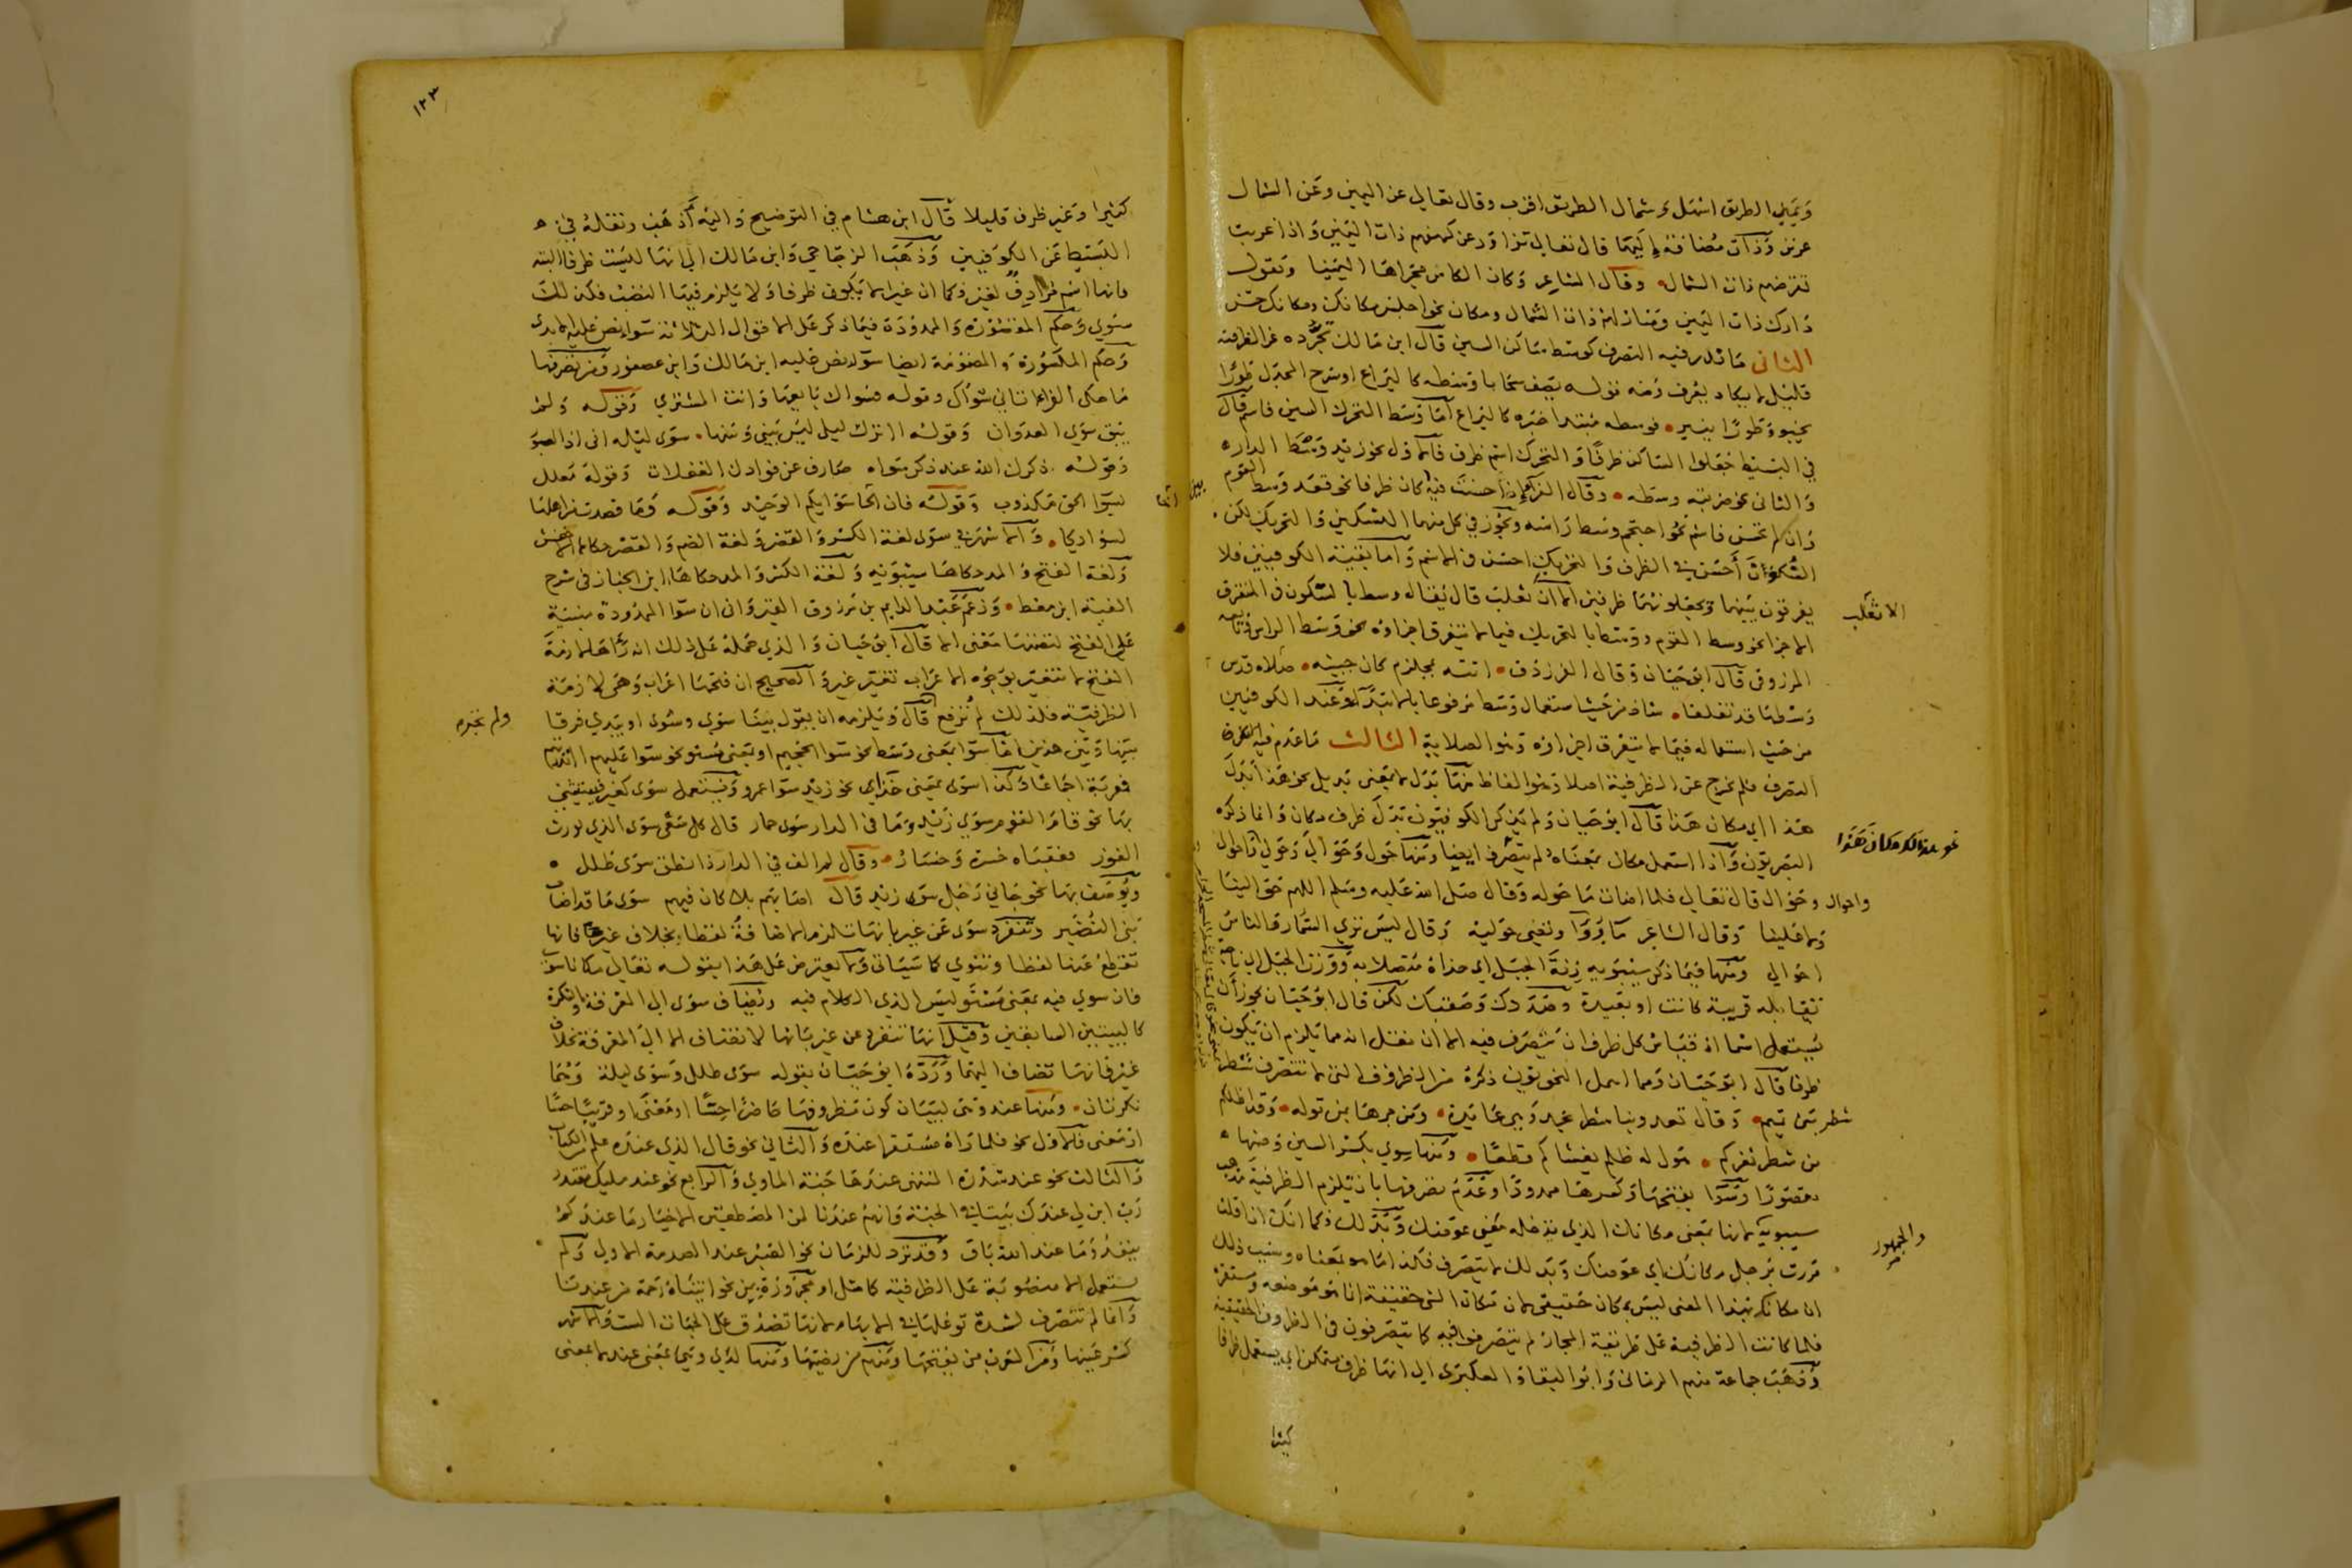 ويمين الطريق اسهل وشمال الطريق اقرب وقال تعالى عن اليمين وعن الشمال
عزين وذات مضافة اليهما قال تعالى تزاور عن كهفهم ذات اليمين واذا غربت
تقرضهم ذات الشمال وقال الشاعر وكان الكاس مجراها اليمينا وتقول
دارك ذات اليمين ومنازلهم ذات الشمال ومكان نحو اجلس مكانك ومكانك حسن
الثاني ما ندر فيه التصرف كوسط ساكن السين قال ابن مالك تجرده عن الظرفية
قليل لا يكاد يعرف ومنه قوله يصف سحابا وسطه كاليراع او سرج المجدل طورا
يخبو وطورا ينير فوسطه مبتدا خبره كاليراع اما وسط المتحرك السين فاسم قال
في البسيط جعلوا الساكن ظرفا والمتحرك اسم ظرف فالاول نحو زيد وسط الدار
والثاني نحو ضربته وسطه وقال الفراء اذا حسنت فيه بين كان ظرفا نحو قعد وسط القوم
وان لم تحسن فاسم نحو احتجم وسط راسه ويجوز في كل منهما التسكين والتحريك لكن
السكون احسن في الظرف والتحريك احسن في الاسم واما بقية الكوفيين فلا
يفرقون بينهما ويجعلونهما ظرفين الا ان ثعلب قال يقال وسط بالسكون في المتفرق
الاجزا نحو وسط القوم ووسط بالتحريك فيما لا تتفرق اجزاؤه نحو وسط الراس
المرزوقي قال ابو حيان وقال الفرزدق اتته بمجلوم كان جبينه صلاة ورس
وسطها قد تفلقا شاذ من حيث استعمال وسط مرفوعا بالابتداء وعند الكوفيين
من حيث استعماله فيما لا يتفرق اجزاوه وهو الصلاية الثالث ما عدم فيه
التصرف فلم يخرج عن الظرفية اصلا وهو الفاظ منها بدل لا بمعنى بديل نحو هذا بدل
هذا اي مكان هذا قال ابو حيان ولم يذكر الكوفيون بدل ظرف مكان وانما ذكره
البصريون واذا استعمل مكان بمعناه لم يتصرف ايضا ومنها حول وحوالي وحولي واحوال
واحوال وحوال قال تعالى فلما اضاءت ما حوله وقال صلى الله عليه وسلم اللهم حوالينا
ولا علينا وقال الشاعر ماء رواء ونصي حوليه وقال ليس ترى السمار والناس
احوالي ومنها فيما ذكر سيبويه زنة الجبل اي حذاه متصلا به ووزن الجبل اي ناحية
تقابله قريبة كانت او بعيدة وصددك وصقبك لكن قال ابو حيان يجوز ان
يستعمل اسما اذ قياس كل ظرف ان يتصرف فيه الا ان نقل انه مما يلزم ان يكون
ظرفا قال ابو حيان ومما اهمل النحويون ذكره من الظروف التي لا تتصرف شطر
شطر بني تميم وقال
من شطر ثغركم هول له ظلم يغشاكم قطعا ومنها سوى بكسر السين وضمها
مقصورا وسوا بفتحها وكسرها ممدودا وعدم تصرفها بان يلزم الظرفية مذهب
سيبويه لانها بمعنى مكانك الذي يدخله معنى عوضك وبدلك فكما انك اذا قلت
مررت برجل مكانك اي عوضك وبدلك لا يتصرف فكذا ما هو بمعناه وسبب ذلك
ان مكانك بهذا المعنى ليس بمكان حقيقي لان مكان الشي حقيقة انما هو موضعه ومستقره
فلما كانت الظرفية على طريقة المجاز لم يتصرفوا فيه كما يتصرفون في الظروف الحقيقية
وذهب جماعة منهم الرماني وابو البقاء العكبري الى انها ظرف متمكن اي يستعمل ظرفا
كثيرا
الا ثعلب
والجمهور
١٢٣
كثيرا وغير ظرف قليلا قال ابن هشام في التوضيح واليه اذهب ونقله في
البسيط عن الكوفيين وذهب الزجاجي وابن مالك الى انها ليست ظرفا البته
فانها اسم مرادف لغير فكما ان غيرا لا يكون ظرفا ولا يلزم فيها النصب فكذلك
سوى وحكم المقصورة والممدودة فيما ذكر على الاقوال الثلاثة سواء نص عليه الابدي
وحكم المكسورة والمضمومة ايضا سواء نص عليه ابن مالك وابن عصفور ومن تصرفها
ما حكى الفرا اتاني سواك وقوله فسواك بايعها وانت المشتري وقوله ولم
يبق سوى العدوان وقوله اترك ليلى ليس بيني وبينها سوى ليله اني اذا لصبور
وقوله ذكرك الله عند ذكر سواه صارف عن فوادك الغفلات وقوله معلل
بسوا الحق مكذوب وقوله فان اتحاسوايكم الوحيد وقوله وما قصدت من اهلها
لسوايكا والاشهر في سوى لغة الكسر والقصر ولغة الضم والقصر حكاها الاخفش
ولغة الفتح والمد حكاها سيبويه ولغة الكسر والمد حكاها ابن الخباز في شرح
الفية ابن معط وزعم عبد الدايم بن مرزوق القيرواني ان سوا الممدودة مبنية
على الفتح لتضمنها معنى الا قال ابو حيان والذي حمله على ذلك انه راها لازمة
الفتح لا تتغير بوجوه الاعراب تغير غير والصحيح ان فتحها اعراب وهي لازمة
الظرفية فلذلك لم ترفع قال ويلزمه ان يقول ببنا سوى وسوى او يبدي فرقا
بينها وبين هذين اما سوا بمعنى وسط نحو سوا الجحيم او بمعنى مستو نحو سوا عليهم
فمعربة اجماعا وكذا سوى بمعنى حذاي نحو زيد سوا عمرو وتستعمل سوى كغير فيستثنى
بها نحو قام القوم سوى زيد وما في الدار سوى حمار قال كل سعى سوى الذي يورث
الفوز فعقباه حسرة وخسار وقال لم الف في الدار ذا نطق سوى طلل
ويوصف بها نحو جاني رجل سوى زيد قال اصابهم بلاء كان فيهم سوى ما قد اصاب
بني النضير وتنفرد سوى عن غير بانها تلزم الاضافة لفظا بخلاف غير فانها
تقتطع عنها لفظا وتنوى كما سياتي ولا يعترض على هذا بقوله تعالى مكانا سوى
فان سوى فيه بمعنى مستو ليس الذي الكلام فيه وتضاف سوى الى المعرفة والنكرة
كالبيتين السابقين وقيل انها تنفرد عن غير بانها لا تضاف الا الى المعرفة بخلاف
غير فانها تضاف اليهما ورده ابو حيان بقوله سوى طلل وسوى ليلة وهما
نكرتان ومنها عند وهي لبيان كون مظروفها حاضرا حسا او معنى او قريبا حسا
او معنى فالاول نحو فلما راه مستقرا عنده والثاني نحو قال الذي عنده علم من الكتاب
والثالث نحو عند سدرة المنتهى عندها جنة الماوى والرابع نحو عند مليك مقتدر
رب ابن لي عندك بيتا في الجنة وانهم عندنا لمن المصطفين الاخيار ما عندكم
ينفد وما عند الله باق وقد ترد للزمان نحو الصبر عند الصدمة الاولى ولم
تستعمل الا منصوبة على الظرفية كما مثل او مجرورة بمن نحو اتيناه رحمة من عندنا
وانما لم تتصرف لشدة توغلها في الابهام لانها تصدق على الجهات الست والاشهر
كسر عينها ومن العرب من يفتحها ومنهم من يضمها ومنها لدى وهي بمعنى عند لا بمعنى
ولم يخبره